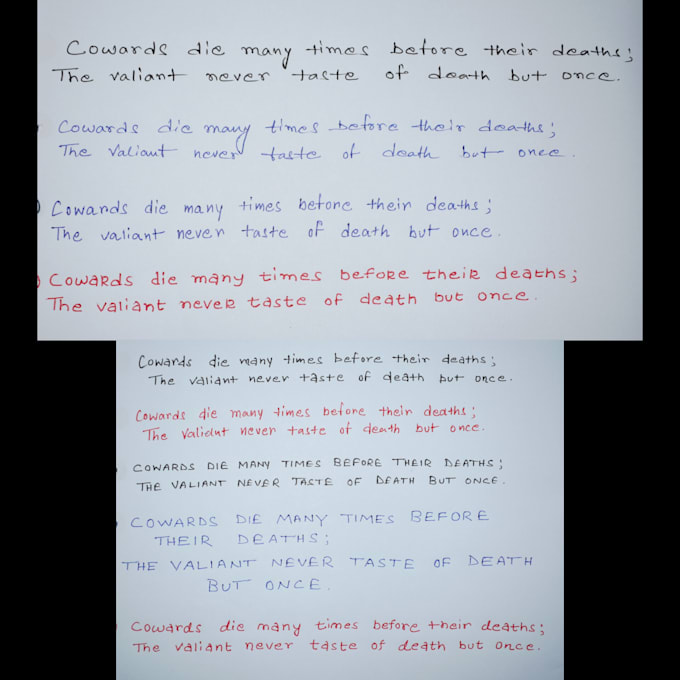 Cowards die many times before their deaths;
The valiant never taste of death but once.
Cowards die many times before their deaths;
The Valiant never taste of death but once.
Cowards die many times before their deaths;
The valiant never taste of death but once.
Cowards die many times before their deaths;
The valiant never taste of death but once.
Cowards die many times before their deaths;
The valiant never taste of death but once.
Cowards die many times before their deaths;
The valiant never taste of death but once.
COWARDS DIE MANY TIMES BEFORE THEIR DEATHS;
THE VALIANT NEVER TASTE OF DEATH BUT ONCE.
COWARDS DIE MANY TIMES BEFORE
THEIR DEATHS;
THE VALIANT NEVER TASTE OF DEATH
BUT ONCE.
Cowards die many times before their deaths;
The valiant never taste of death but once.